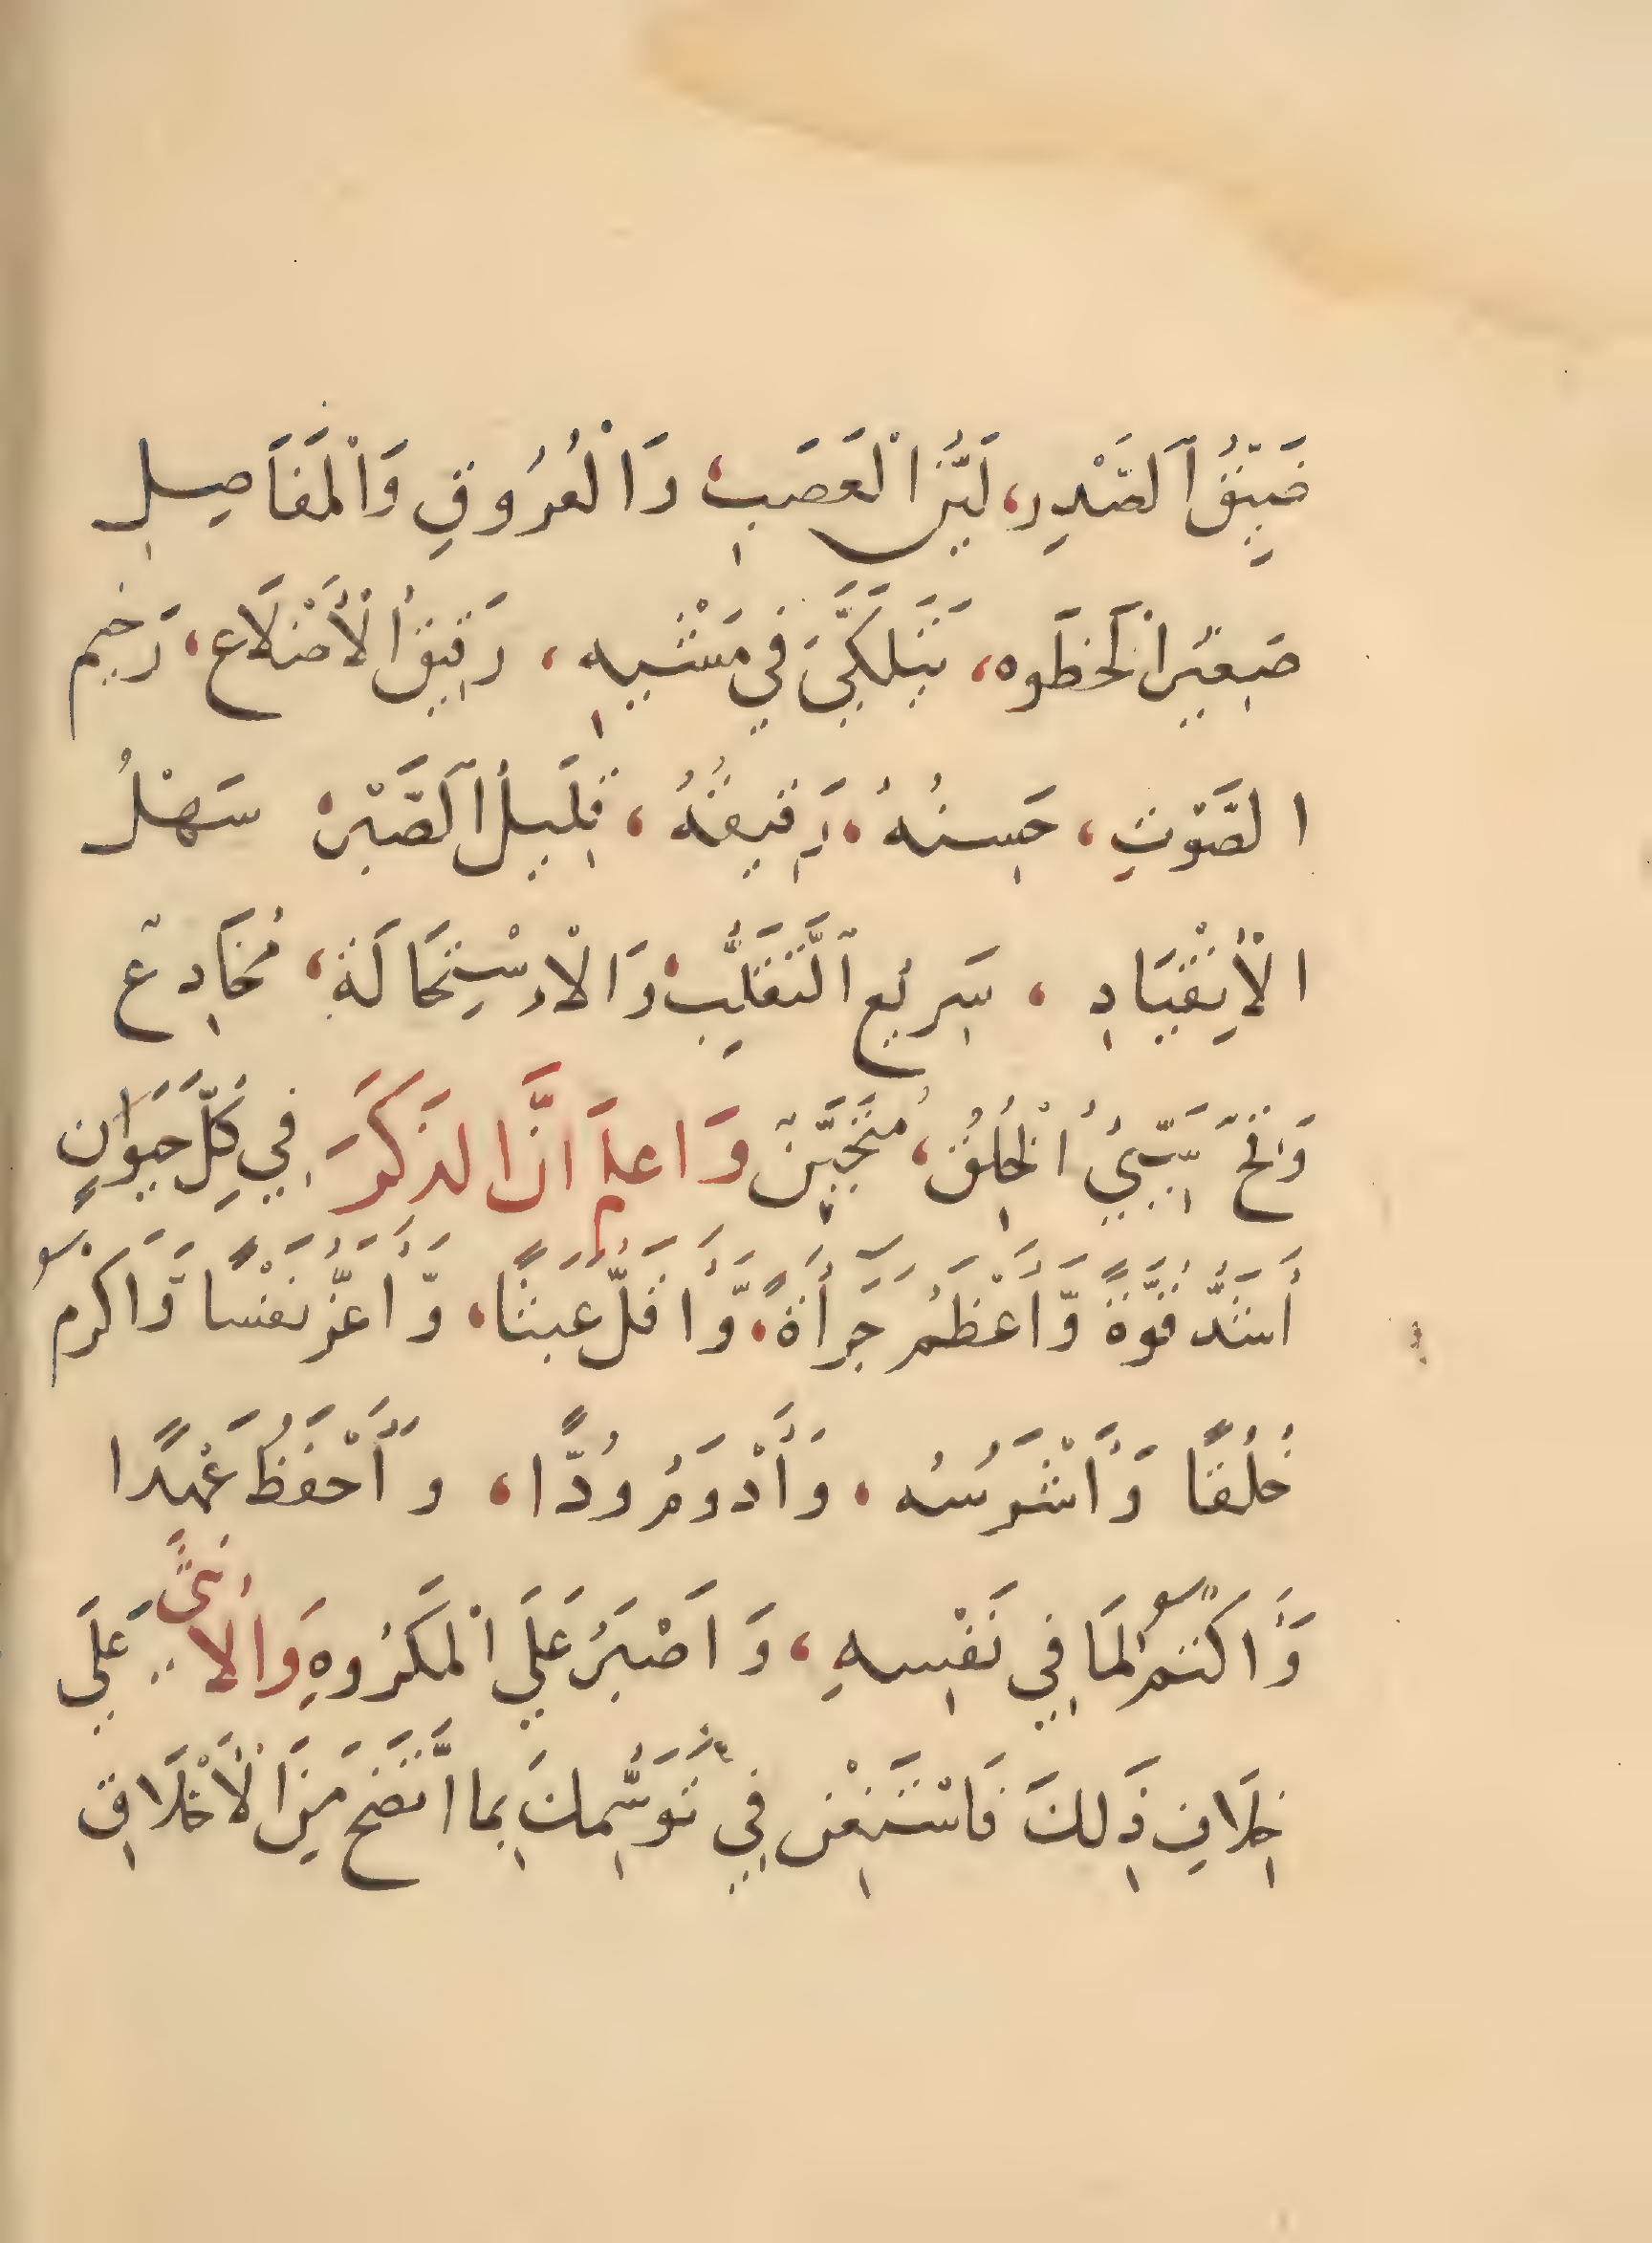 ضَيِّقُ الصَّدْرِ، لَيِّنُ الْعَصَبِ، وَالْعُرُوقِ وَالْمَفَاصِلِ
صَغِيرُ الْخَطْوِه، يَتَلَكَّى فِي مَشْيِهِ، رَقِيقُ الْأَضْلَاعِ، رَخِيم
الصَّوْتِ، حَسِنُهُ، رَقِيقُهُ، قَلِيلُ الصَّبْرِ، سَهْلُ
الْأِنْقِيَادِ، سَرِيعُ التَّقَلُّبِ، وَالْاِسْتِحَالَةِ، مُخَادِعٌ
وَقِحٌ سَيِّيُ الْخُلُقِ، وَاعلم انَّ الذَكَرَ فِي كُلِّ حَيَوَانٍ
أَشَدُّ قُوَّةً وَّأَعْظَمُ جَرَأَةً، وَّأَقَلُّ عَبَثًا، وَّأَعَزُّ نَفْسًا وَّاكْرَم
خُلُقًا وَأَشْرَسُه، وَأَدْوَمُ وُدًّا، وَأَحْفَظُ عَهْدًا
وَّأَكْتَمُ لِمَا فِي نَفْسِهِ، وَاصْبَرُ عَلَي الْمَكْرُوهِ وَالانثى عَلَي
خِلَافِ ذَلِكَ فَاسْتَعِنْ فِي تَوَسُّمِكَ بِما اتَّضَحَ مِنَ الْأَخْلَاقِ